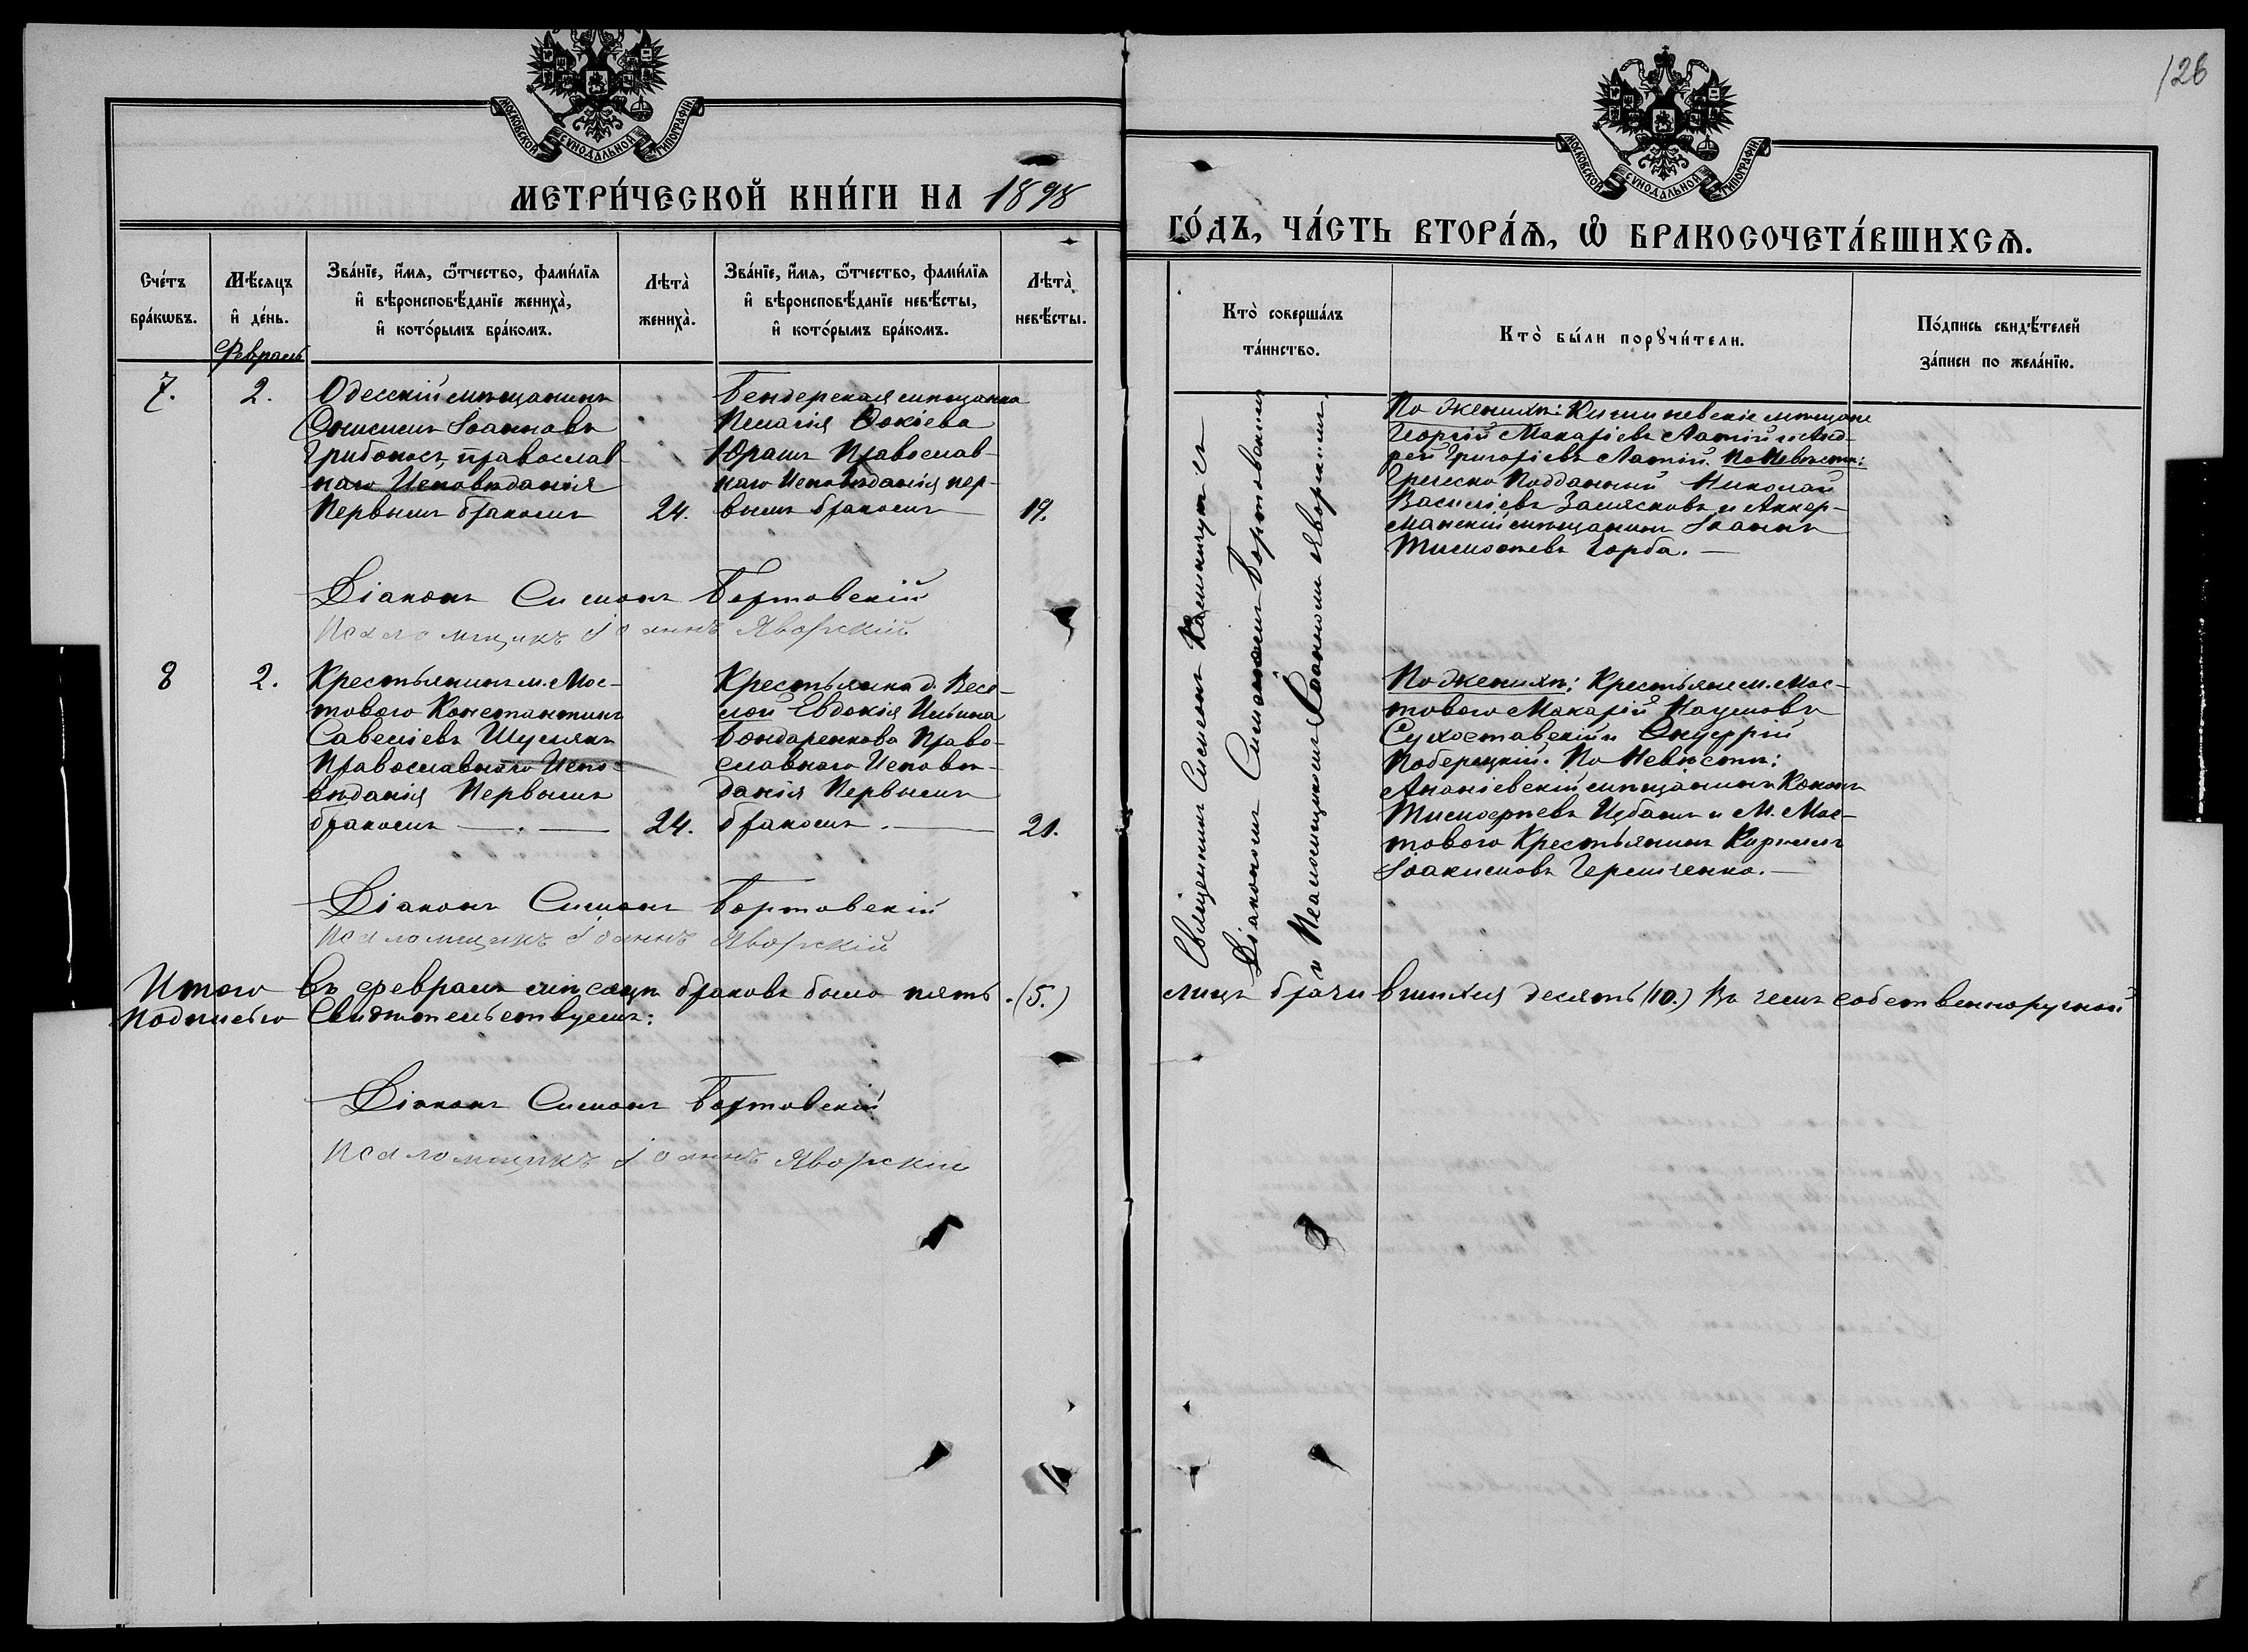 126
МОСКОВСКОЙ СѴНОДАЛЬНОЙ ТИПОГРАФІИ
МЕТРИ́ЧЕСКОЙ КНИ́ГИ НА 1898
МОСКОВСКОЙ СѴНОДАЛЬНОЙ ТИПОГРАФІИ
ГО́ДЪ, ЧА́СТЬ ВТОРА́Ѧ, Ѡ БРАКОСОЧЕТА́ВШИХСѦ.
Сче́тъ
бра́кѡвъ.
Мѣ́сяцъ
и҆ де́нь.
Февраль
Зва́нїе, и҆́мѧ, ѻ҆́тчество, фами́лїѧ
и҆ вѣроисповѣ́данїе женихà,
и҆ кото́рымъ бра́комъ.
Лѣтà
женихà.
Зва́нїе, и҆́мѧ, ѻ҆́тчество, фами́лїѧ
и҆ вѣроисповѣ́данїе невѣ́сты,
и҆ кото́рымъ бра́комъ.
Лѣтà
невѣ́сты.
Кто̀ соверша́лъ
та́инство.
Кто̀ бы́ли порꙋчи́тели.
По́дпись свидѣ́телей
за́писи по жела́нїю.
7.
2.
Одесскій мѣщанинъ
Онисимъ Іоанновъ
Грибоносъ, православ-
наго Исповѣданія
Первымъ бракомъ
24.
Бендерская мѣщанка
Пелагія Фокіева
Юрашъ Православ-
наго Исповѣданія пер-
вымъ бракомъ
19.
Священникъ Симеонъ съ
Діакономъ Симономъ Бортовскимъ
и Псаломщикомъ Іоанномъ Яворскимъ.
По женихѣ: Кишиневскіе мѣщане
Георгій Макаріевъ Латій и Анд-
рей Григоріевъ Латій. По Невѣстѣ:
Греческо Подданный Николай
Василіевъ и Аккер-
манскій мѣщанинъ Іоаннъ
Тимофеевъ Горба.
Діаконъ Симонъ Бортовскій
Псаломщикъ Іоаннъ Яворскій
8
2.
Крестьянинъ м. Мос-
тового Константинъ
Савеліевъ Шумякъ
Православнаго Испо-
вѣданія Первымъ
бракомъ
24.
Крестьянка д. Весе-
лой Евдокія Ильина
Бондаренкова Право-
славнаго Исповѣ-
данія Первымъ
бракомъ.
21.
По женихѣ: Крестьяне м. Мос-
тового Макарій Наумовъ
Сухоставскій и Онуфрій
Поберецкій. По Невѣстѣ:
Ананіевскій мѣщанинъ Кононъ
Тимофеевъ Цыбанъ и М. Мос-
тового Крестьянинъ Кирилъ
Іоакимовъ Герещенко.
Діаконъ Симонъ Бортовскій
Псаломщикъ Іоаннъ Яворскій
Итого Въ февралѣ мѣсяцѣ браковъ было пять. (5.) лицъ брачившихся десять (10.) Въ чемъ собственноручной
Подписью Свидѣтельствуемъ:
Діаконъ Симонъ Бортовскій
Псаломщикъ Іоаннъ Яворскій